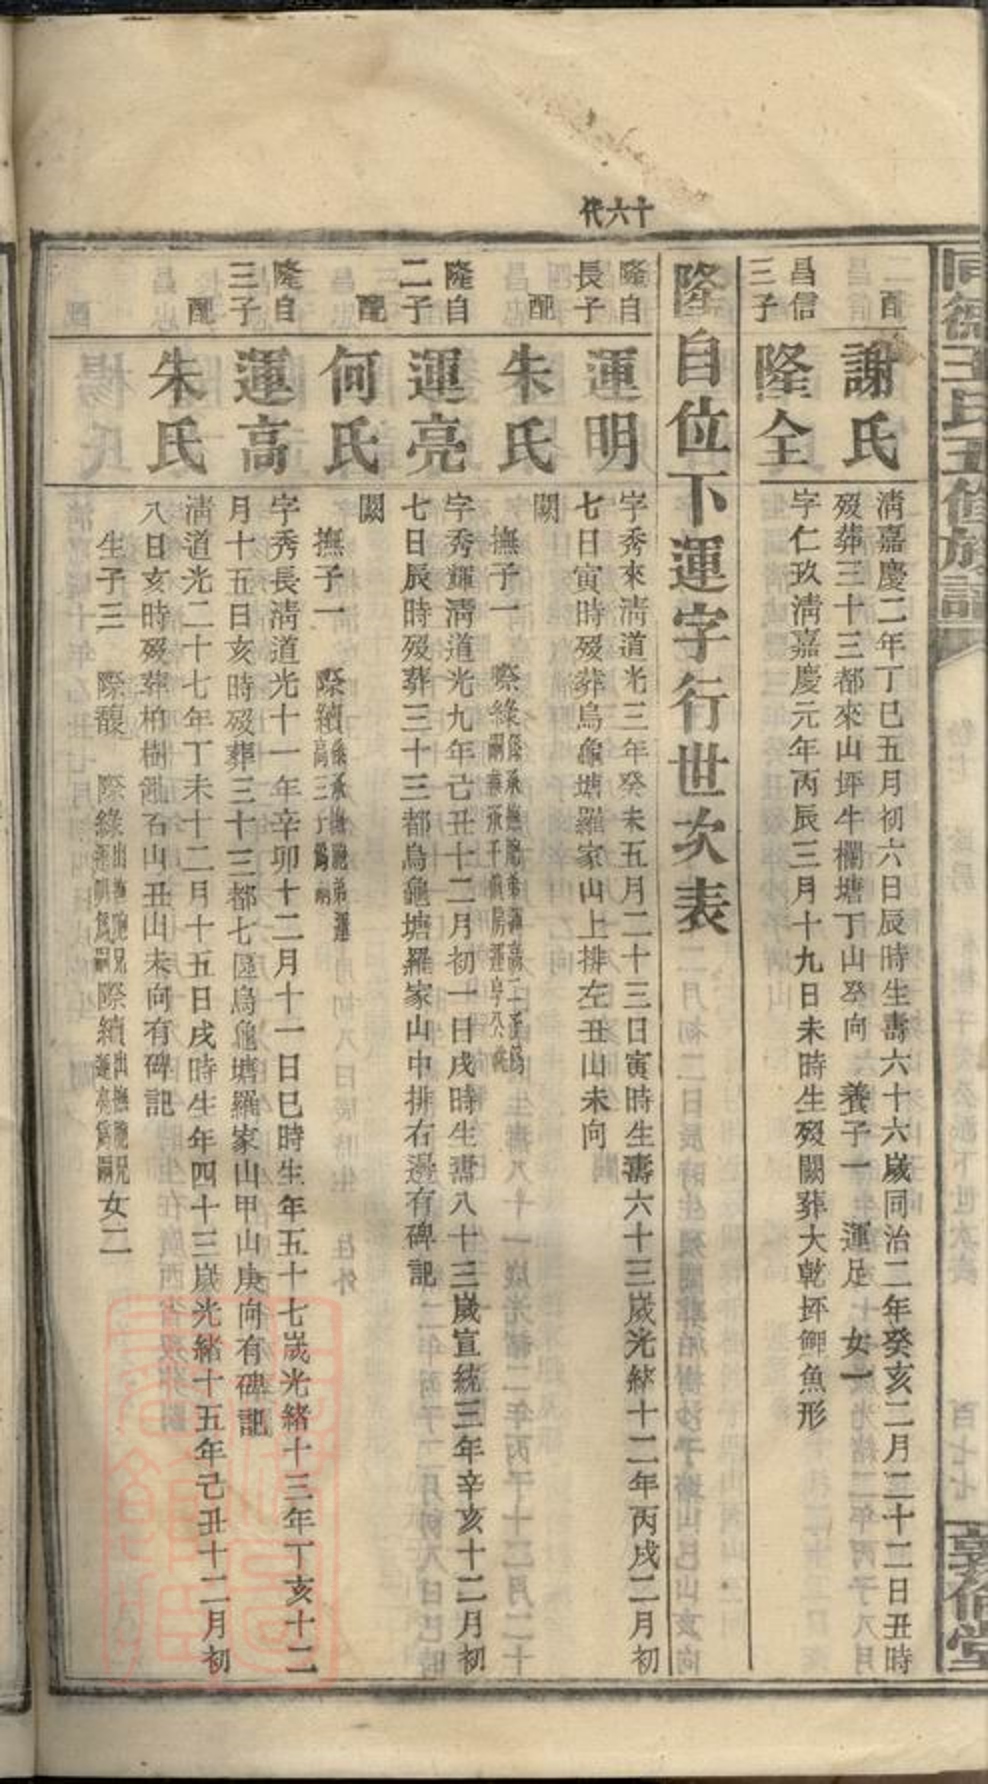 同德王氏五修族譜
百七七
敦倫堂
十六代
配
謝氏
清嘉慶二年丁巳五月初六日辰時生壽六十六歲同治二年癸亥二月二十二日丑時
歿葬三十三都來山坪牛欄塘丁山癸向 養子一 運足 女一
昌信三子
隆全
字仁玖清嘉慶元年丙辰三月十九日未時生歿闕葬大乾坪鯉魚形
隆自位下運字行世次表
隆自長子
運明
字秀來清道光三年癸未五月二十三日寅時生壽六十三歲光緒十二年丙戌二月初
七日寅時歿葬烏龜塘羅家山上排左丑山未向
配
朱氏
闕
撫子一 際綠
隆自二子
運亮
字秀輝清道光九年己丑十二月初一日戌時生壽八十三歲宣統三年辛亥十二月初
七日辰時歿葬三十三都烏龜塘羅家山中排右邊有碑記
配
何氏
闕
撫子一 際續係承撫胞弟運高三子為嗣
隆自三子
運高
字秀長清道光十一年辛卯十二月十一日巳時生年五十七歲光緒十三年丁亥十二
月十五日亥時歿葬三十三都七區烏龜塘羅家山甲山庚向有碑記
配
朱氏
清道光二十七年丁未十二月十五日戌時生年四十三歲光緒十五年己丑十二月初
八日亥時歿葬柏樹 石山丑山未向有碑記
生子三 際馥 際綠出撫胞兄運明為嗣 際續出撫胞兄運亮為嗣 女二